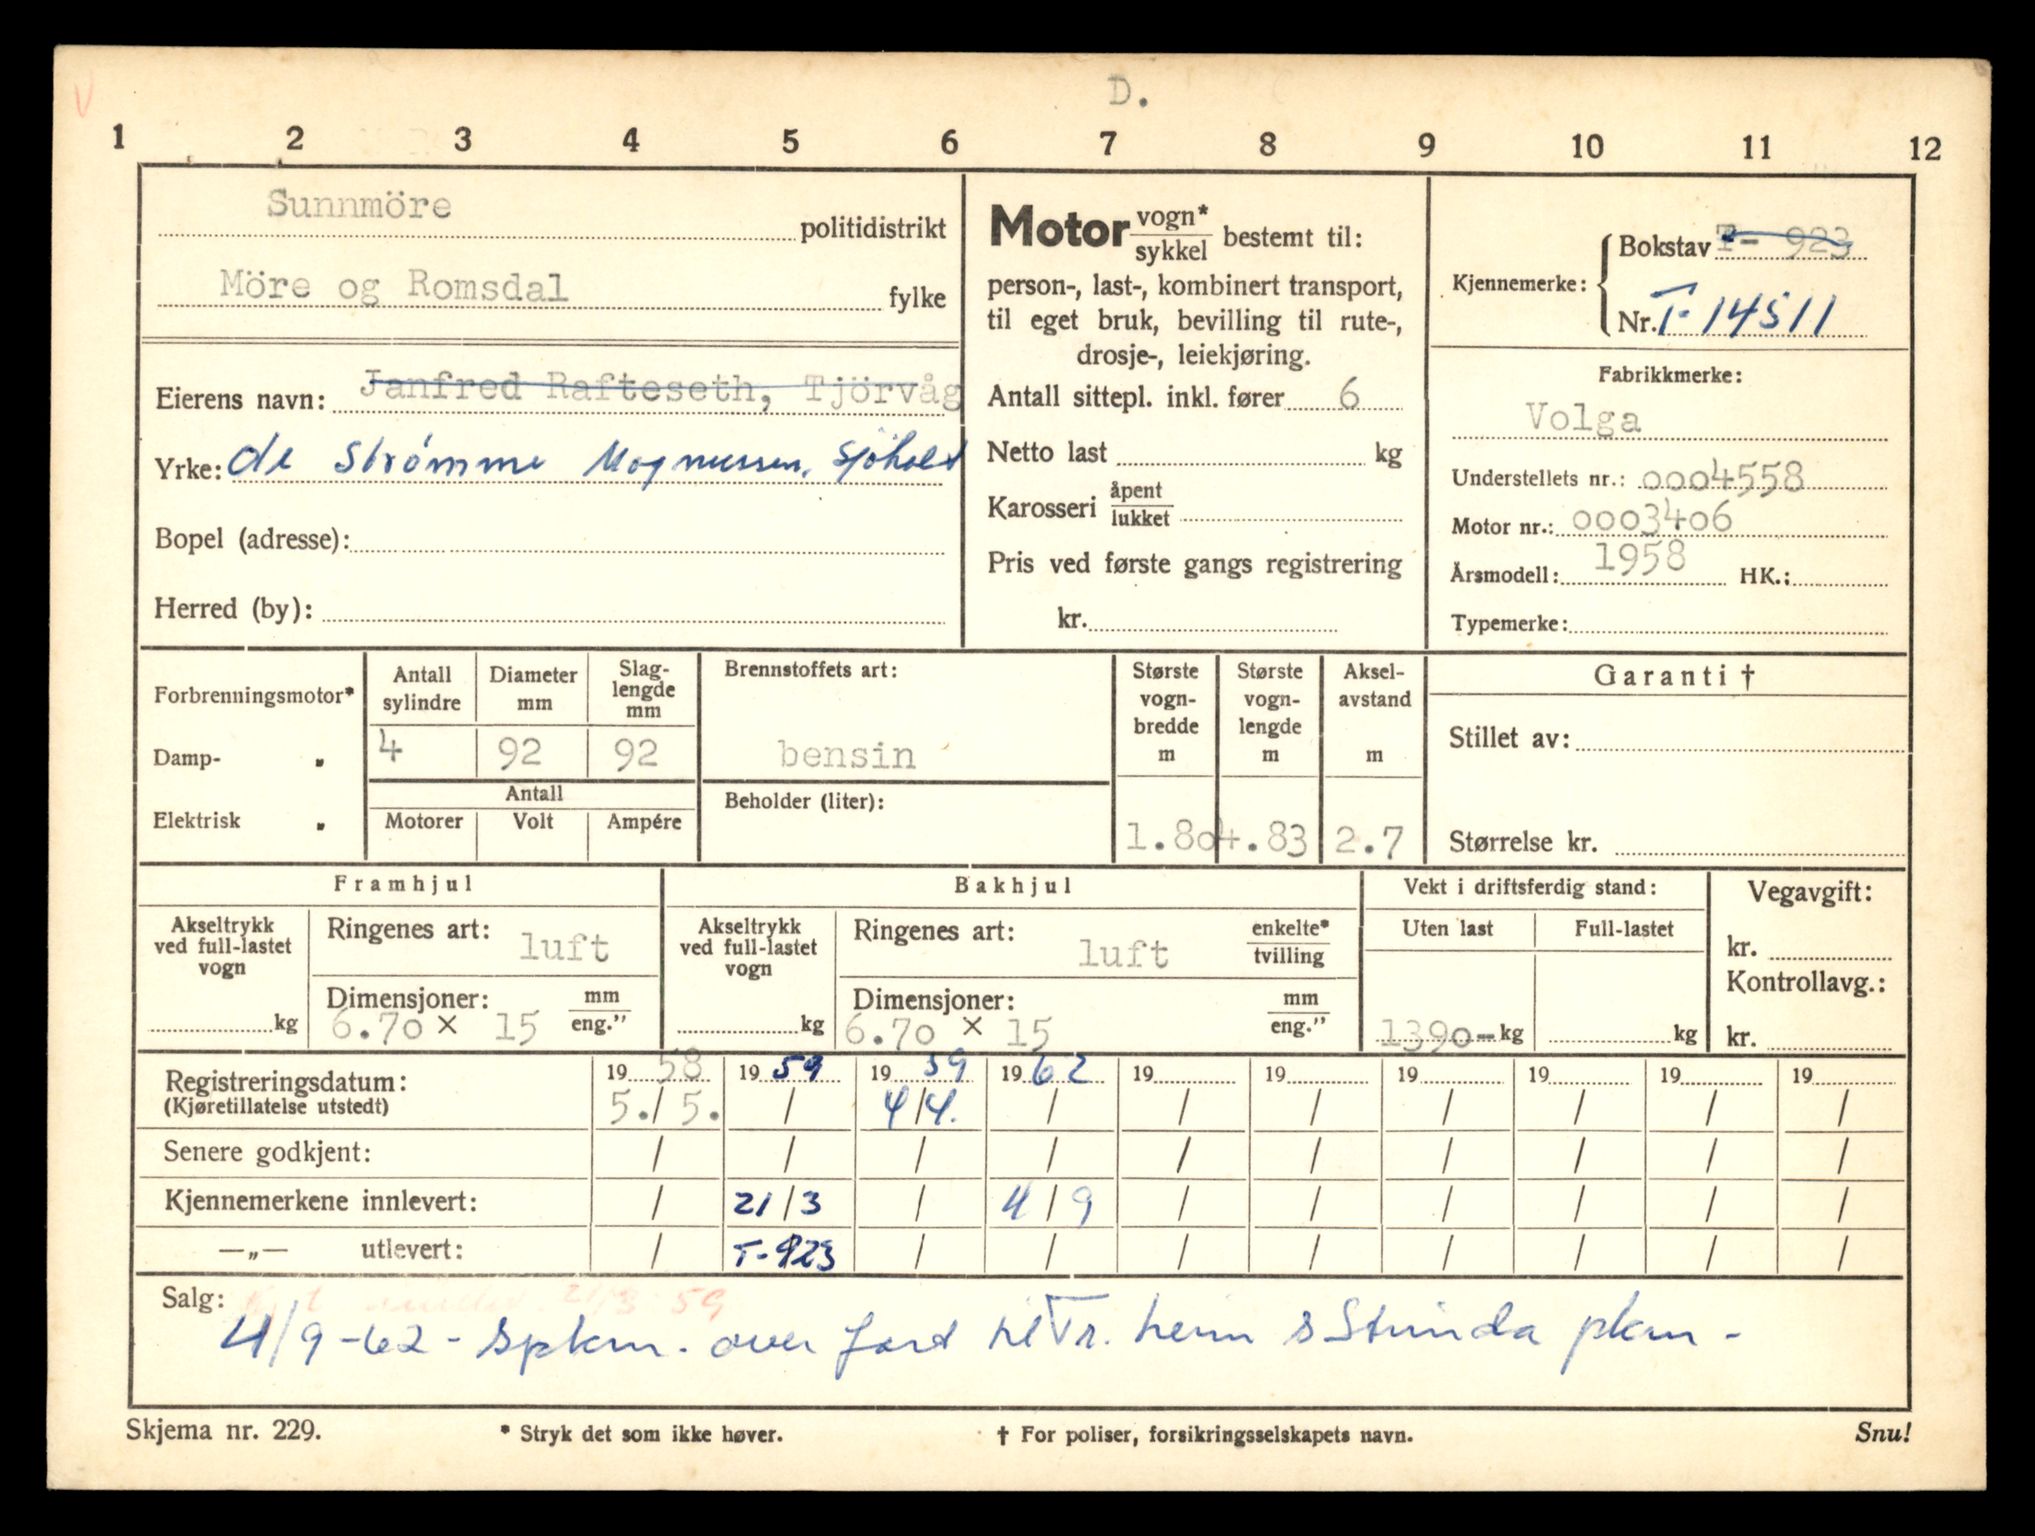 D.
1 2 3 4 5 6 7 8 9 10 11 12
Sunnmöre politidistrikt
Möre og Romsdal fylke
Eierens navn: Janfred Rafteseth, Tjörvåg
Yrke: de Strømme Magnussen, Sjöholt
Bopel (adresse):
Herred (by):
Motor vogn*/sykkel bestemt til:
person-, last-, kombinert transport,
til eget bruk, bevilling til rute-,
drosje-, leiekjøring.
Antall sittepl. inkl. fører 6
Netto last kg
Karosseri åpent/lukket
Pris ved første gangs registrering
kr.
Kjennemerke: Bokstav T- 923
Nr. T-14511
Fabrikkmerke:
Volga
Understellets nr.: 0004558
Motor nr.: 0003406
Årsmodell: 1958 HK.:
Typemerke:
Forbrenningsmotor*
Damp- "
Elektrisk "
Antall sylindre
4
Diameter mm
92
Slag-
lengde
mm
92
Antall
Motorer Volt Ampére
Brennstoffets art:
bensin
Beholder (liter):
Største
vogn-
bredde
m
1.80
Største
vogn-
lengde
m
4.83
Aksel-
avstand
m
2.7
Garanti †
Stillet av:
Størrelse kr.
Framhjul
Akseltrykk
ved full-lastet
vogn
kg
Ringenes art: luft
Dimensjoner: mm/eng."
6.70 × 15
Bakhjul
Akseltrykk
ved full-lastet
vogn
kg
Ringenes art: luft enkelte*/tvilling
Dimensjoner: mm/eng."
6.70 × 15
Vekt i driftsferdig stand:
Uten last Full-lastet
1390- kg kg
Vegavgift:
kr.
Kontrollavg.:
kr.
Registreringsdatum: 19 58 19 59 19 59 19 62 19 19 19 19 19 19
(Kjøretillatelse utstedt) 5. / 5. / 4/4. / / / / / / /
Senere godkjent: / / / / / / / / / /
Kjennemerkene innlevert: / 21/3 / 4/9 / / / / / /
—„— utlevert: / T-923 / / / / / / / /
Salg: 21/3 59
4/9-62 - spkm. over ford til Tr.heim s Strinda pkm -
Skjema nr. 229.
* Stryk det som ikke høver.
† For poliser, forsikringsselskapets navn.
Snu!